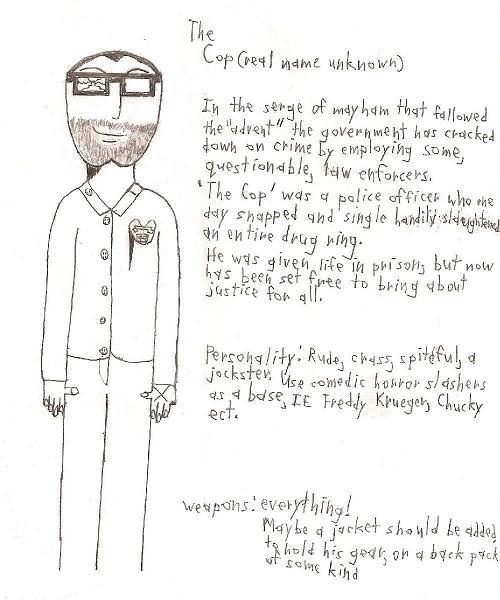 The
Cop (real name unknown)
In the serge of mayham that fallowed
the "advent" the government has cracked
down on crime by employing some,
questionable, law enforcers.
'The Cop' was a police officer who one
day snapped and single handily slaughtered
an entire drug ring.
He was given life in prison, but now
has been set free to bring about
justice for all.
Personality: Rude, crass, spiteful, a
jockster. Use comedic horror slashers
as a base, IE Freddy Krueger, Chucky
ect.
weapons: everything!
Maybe a jacket should be added
to hold his gear, or a back pack
of some kind